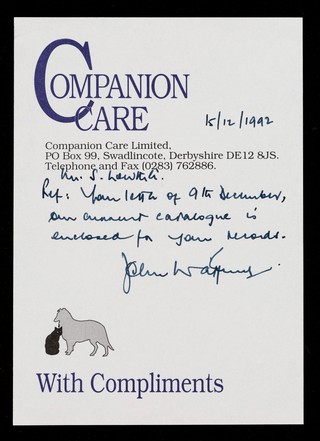 COMPANION
CARE
15/12/1992
Companion Care Limited,
PO Box 99, Swadlincote, Derbyshire DE12 8JS.
Telephone and Fax (0283) 762886.
Mr. S.
Ref: Your letter of 9th December,
our current catalogue is
enclosed for your records.
John
With Compliments